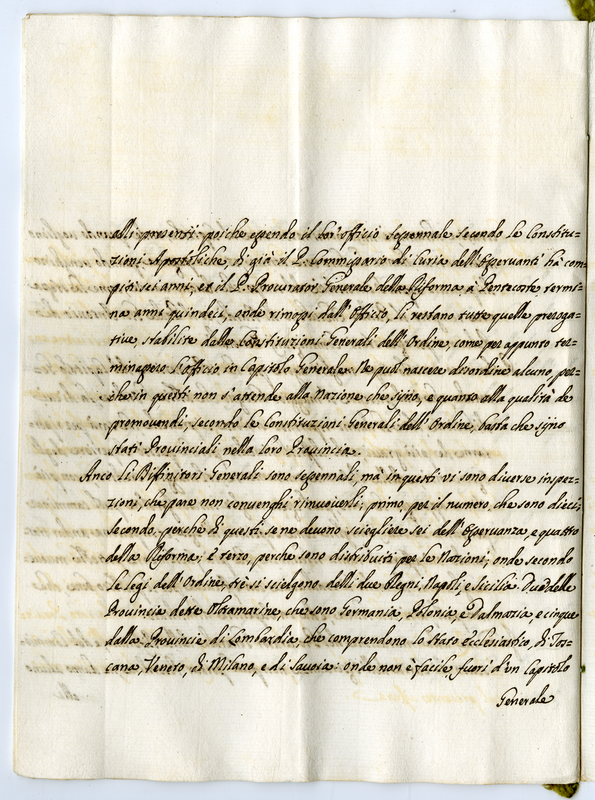 alli presenti: poiche essendo il lor'officio sessennale secondo le Constitu=
zioni Apostoliche, di già il P. Commissario di Curia dell'Osservanti hà com=
piti sei anni, et il P. Procurator Generale della Riforma, à Pentecoste termi=
na anni quindeci, onde rimossi dall'Officio, li restano tutte quelle preroga=
tive, stabilite dalle Constituzioni Generali dell'Ordine, come per appunto ter=
minassero l'officio in Capitolo Generale. Ne può nascere disordine alcuno, per=
che in questi non s'attende alla Nazione che sijno, e quanto alla qualità de
promovendi, secondo le Constituzioni Generali dell'Ordine, basta che sijno
stati Provinciali nella loro Provincia.
Anco li Diffinitori Generali sono sessennali, mà in questi vi sono diverse inspez=
zioni, che pare non convenghi rimuoverli; primo, per il numero, che sono dieci,
secondo, perche di questi se ne devono sciegliere sei dell'Osservanza, e quattro
della Riforma; è terzo, perche sono distribuiti per le Nazioni; onde secondo
le legi dell'Ordine, trè si scielgono delli due Regni, Napoli, e Sicilia. Due delle
Provincie dette Oltramarine, che sono Germania, Polonia, e Dalmazia, e cinque
dalla Provincie di Lombardia, che comprendono lo Stato Ecclesiastico, di Tos=
cana, Veneto, di Milano, e di Savoia: onde non è facile, fuori d'un Capitolo
Generale